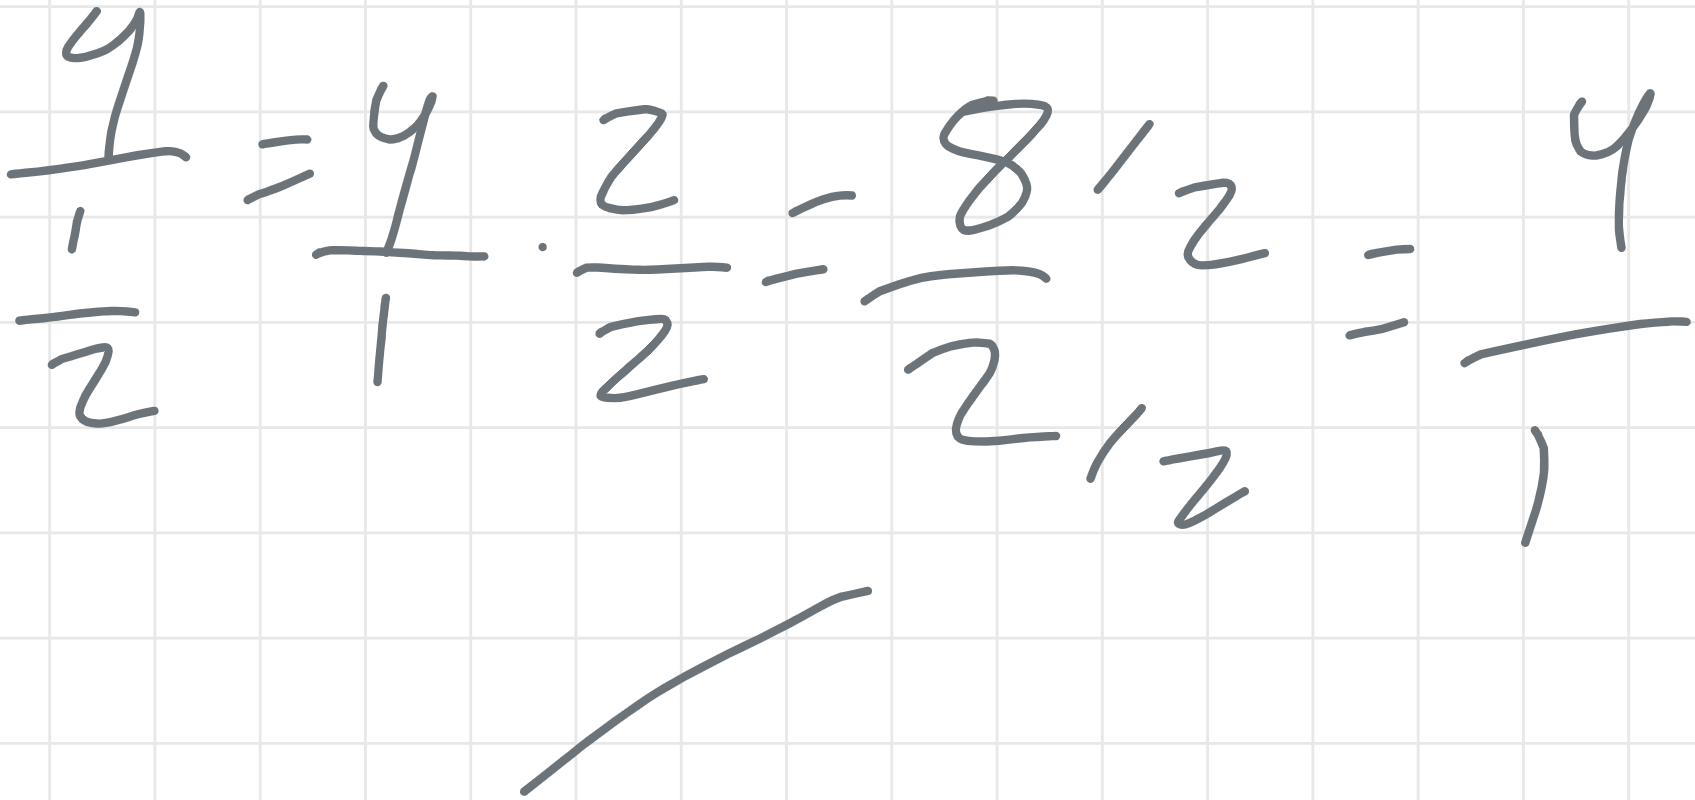 4/1/2 = 4/1 · 2/2 = 8/2 / 2/2 = 4/1